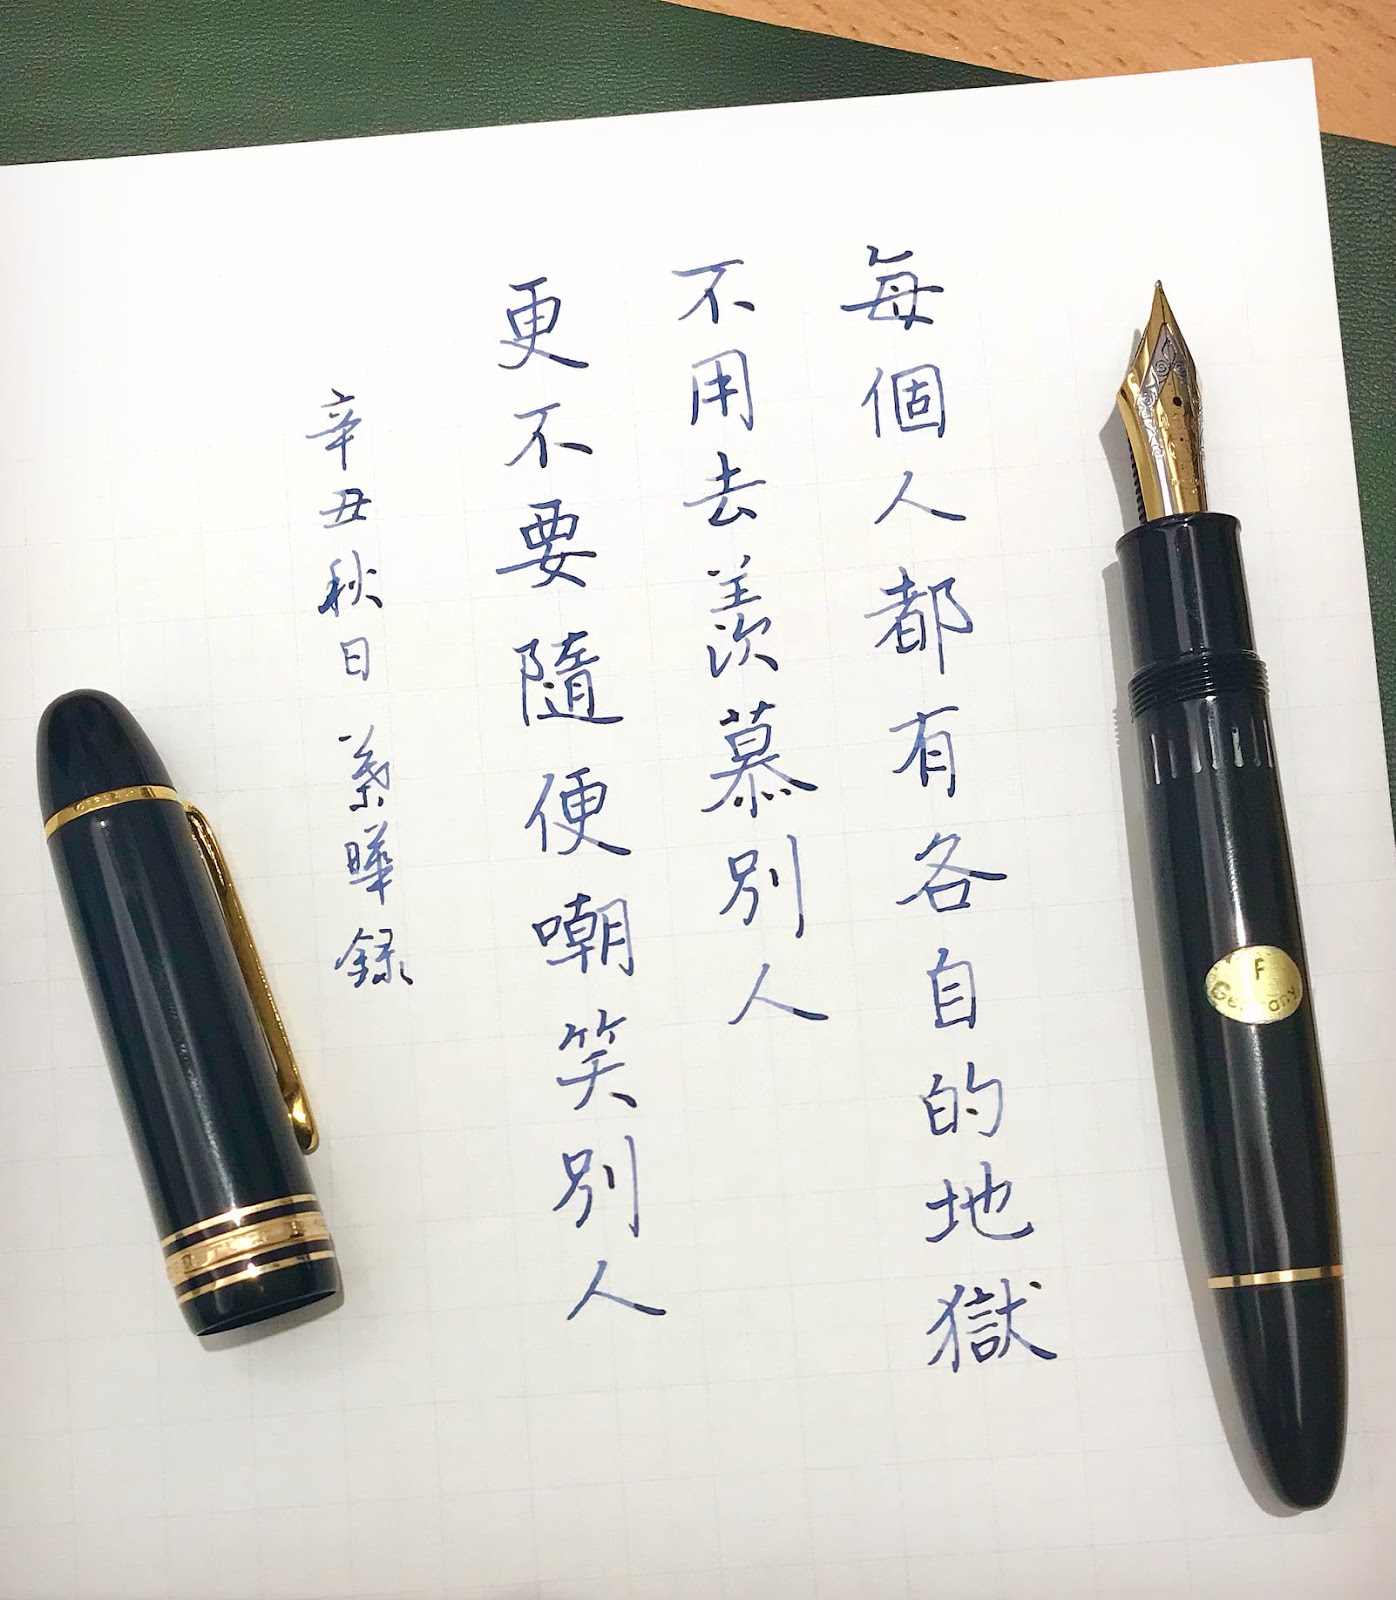 每個人都有各自的地獄
不用去羨慕別人
更不要隨便嘲笑別人
辛丑秋日 曄錄
F
Germany